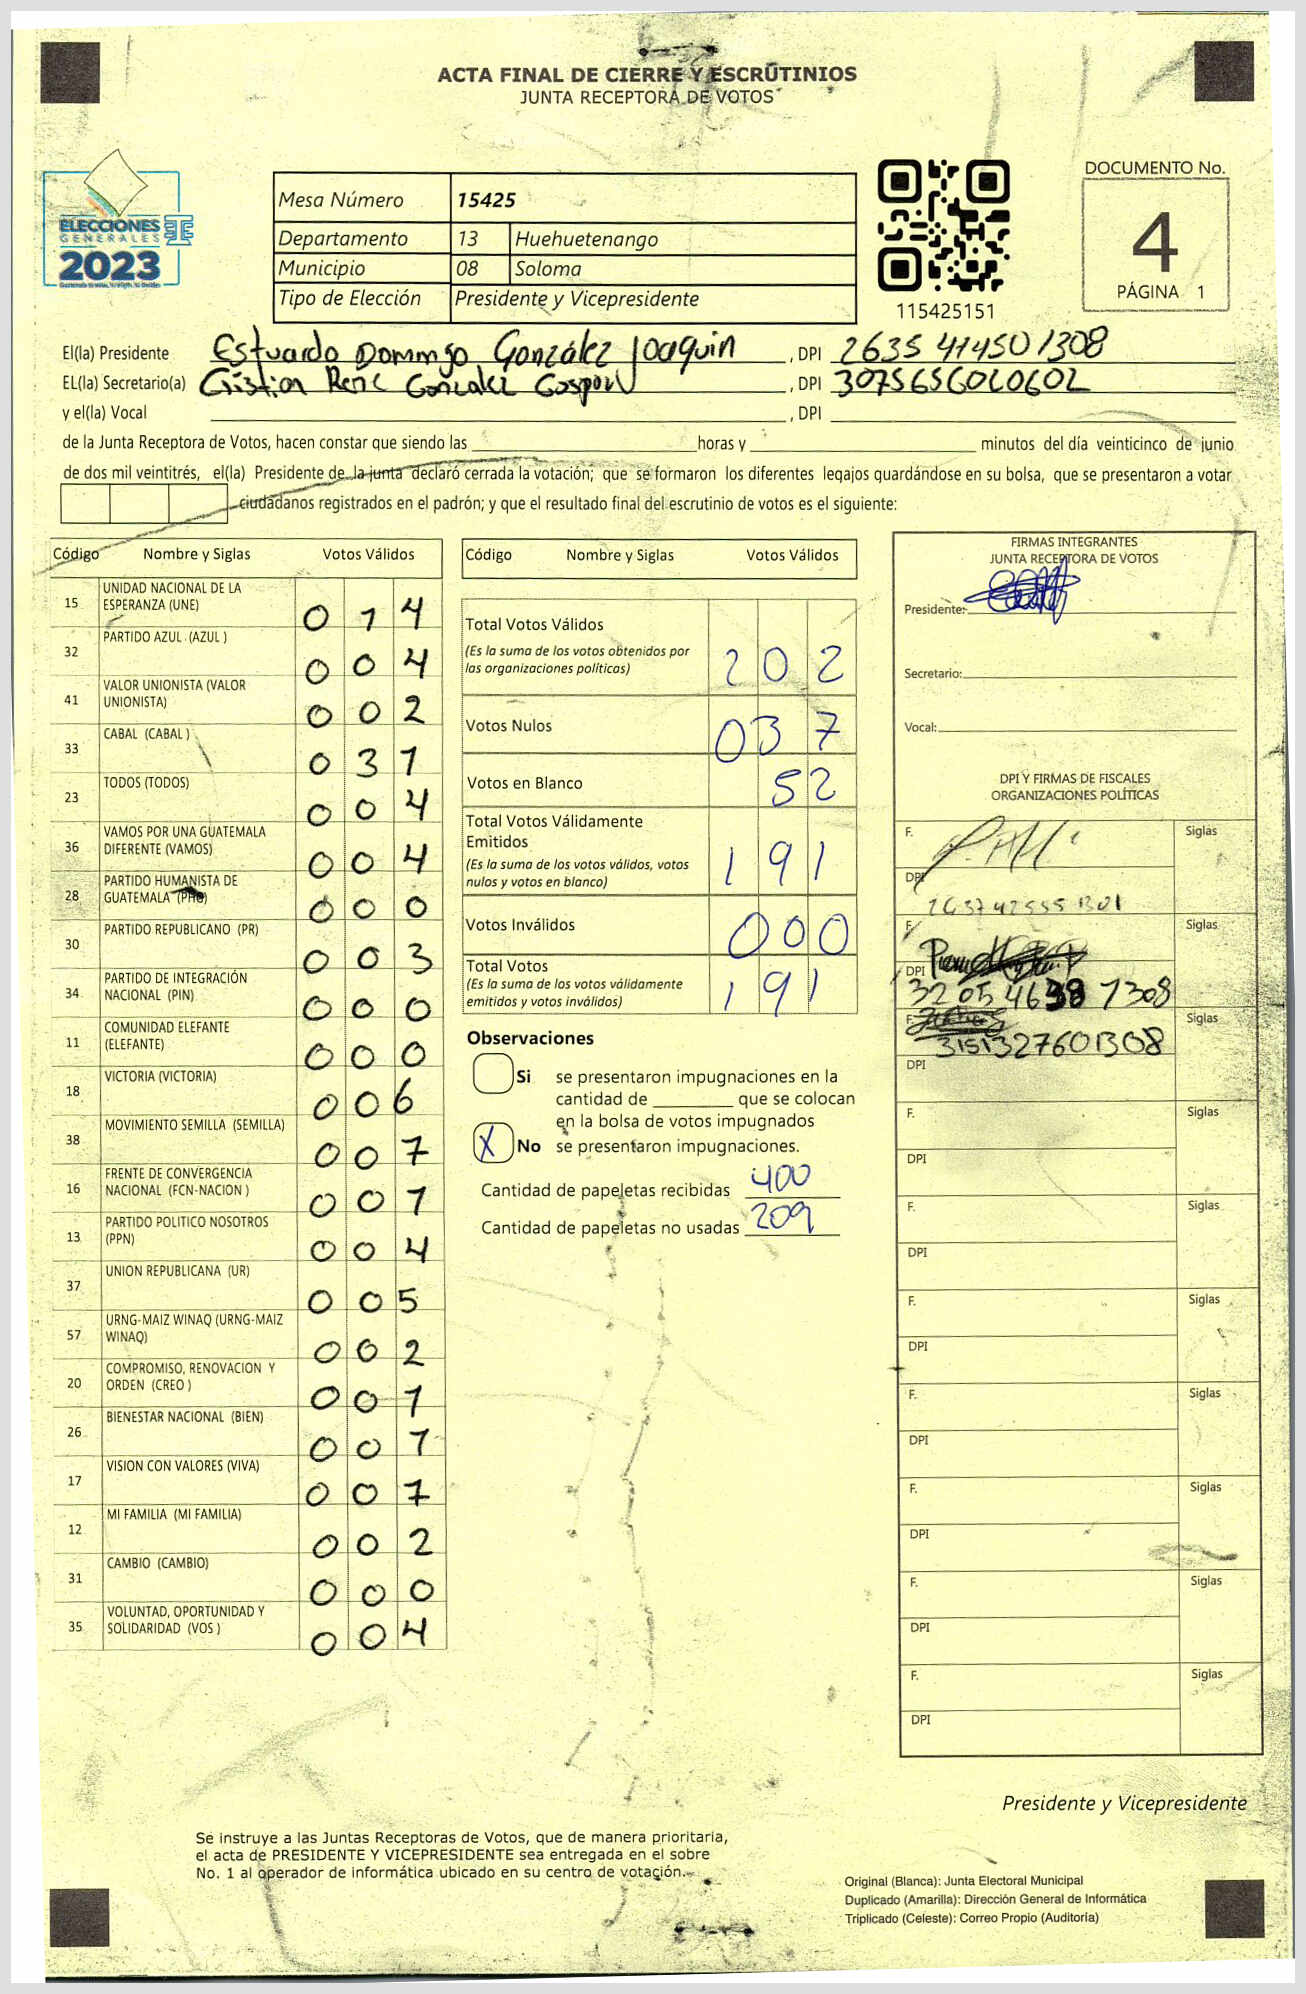 ACTA FINAL DE CIERRE Y ESCRUTINIOS
JUNTA RECEPTORA DE VOTOS
ELECCIONES
GENERALES
2023
Mesa Número 15425
Departamento 13 Huehuetenango
Municipio 08 Soloma
Tipo de Elección Presidente y Vicepresidente
115425151
DOCUMENTO No.
4
PÁGINA 1
El(la) Presidente Estuardo Domingo González Joaquin , DPI 2635 41450 1308
EL(la) Secretario(a) Cristian Rene Gonzalez Gaspar , DPI 3075656020602
y el(la) Vocal , DPI
de la Junta Receptora de Votos, hacen constar que siendo las horas y minutos del día veinticinco de junio
de dos mil veintitrés, el(la) Presidente de la junta declaró cerrada la votación; que se formaron los diferentes legajos guardándose en su bolsa, que se presentaron a votar
ciudadanos registrados en el padrón; y que el resultado final del escrutinio de votos es el siguiente:
Código Nombre y Siglas Votos Válidos
15 UNIDAD NACIONAL DE LA ESPERANZA (UNE) 0 1 4
32 PARTIDO AZUL (AZUL ) 0 0 4
41 VALOR UNIONISTA (VALOR UNIONISTA) 0 0 2
33 CABAL (CABAL ) 0 3 1
23 TODOS (TODOS) 0 0 4
36 VAMOS POR UNA GUATEMALA DIFERENTE (VAMOS) 0 0 4
28 PARTIDO HUMANISTA DE GUATEMALA (PHG) 0 0 0
30 PARTIDO REPUBLICANO (PR) 0 0 3
34 PARTIDO DE INTEGRACIÓN NACIONAL (PIN) 0 0 0
11 COMUNIDAD ELEFANTE (ELEFANTE) 0 0 0
18 VICTORIA (VICTORIA) 0 0 6
38 MOVIMIENTO SEMILLA (SEMILLA) 0 0 7
16 FRENTE DE CONVERGENCIA NACIONAL (FCN-NACION ) 0 0 1
13 PARTIDO POLITICO NOSOTROS (PPN) 0 0 4
37 UNION REPUBLICANA (UR) 0 0 5
57 URNG-MAIZ WINAQ (URNG-MAIZ WINAQ) 0 0 2
20 COMPROMISO, RENOVACION Y ORDEN (CREO ) 0 0 1
26 BIENESTAR NACIONAL (BIEN) 0 0 7
17 VISION CON VALORES (VIVA) 0 0 7
12 MI FAMILIA (MI FAMILIA) 0 0 2
31 CAMBIO (CAMBIO) 0 0 0
35 VOLUNTAD, OPORTUNIDAD Y SOLIDARIDAD (VOS ) 0 0 4
Código Nombre y Siglas Votos Válidos
Total Votos Válidos
(Es la suma de los votos obtenidos por
las organizaciones políticas) 2 0 2
Votos Nulos 0 3 7
Votos en Blanco 5 2
Total Votos Válidamente
Emitidos
(Es la suma de los votos válidos, votos
nulos y votos en blanco) 1 9 1
Votos Inválidos 0 0 0
Total Votos
(Es la suma de los votos válidamente
emitidos y votos inválidos) 1 9 1
Observaciones
Si se presentaron impugnaciones en la
cantidad de que se colocan
en la bolsa de votos impugnados
X No se presentaron impugnaciones.
Cantidad de papeletas recibidas 400
Cantidad de papeletas no usadas 209
FIRMAS INTEGRANTES
JUNTA RECEPTORA DE VOTOS
Presidente:
Secretario:
Vocal:
DPI Y FIRMAS DE FISCALES
ORGANIZACIONES POLÍTICAS
F. Siglas
DPI
F. Siglas
DPI
F. Siglas
3151327601308
DPI
F. Siglas
DPI
F. Siglas
DPI
F. Siglas
DPI
F. Siglas
DPI
F. Siglas
DPI
F. Siglas
DPI
F. Siglas
DPI
Presidente y Vicepresidente
Se instruye a las Juntas Receptoras de Votos, que de manera prioritaria,
el acta de PRESIDENTE Y VICEPRESIDENTE sea entregada en el sobre
No. 1 al operador de informática ubicado en su centro de votación.
Original (Blanca): Junta Electoral Municipal
Duplicado (Amarilla): Dirección General de Informática
Triplicado (Celeste): Correo Propio (Auditoría)